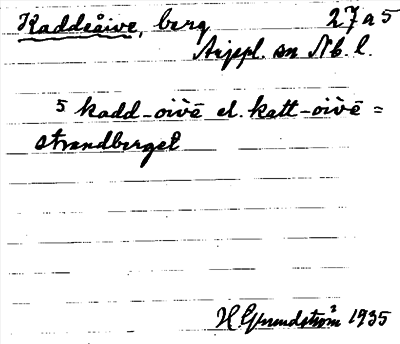 Kaddeåive, berg 27 a 5
Arjepl. sn Nb. l.
5 kadd-oi͡vē el. katt-oi͡vē =
strandberget
H Grundström 1935